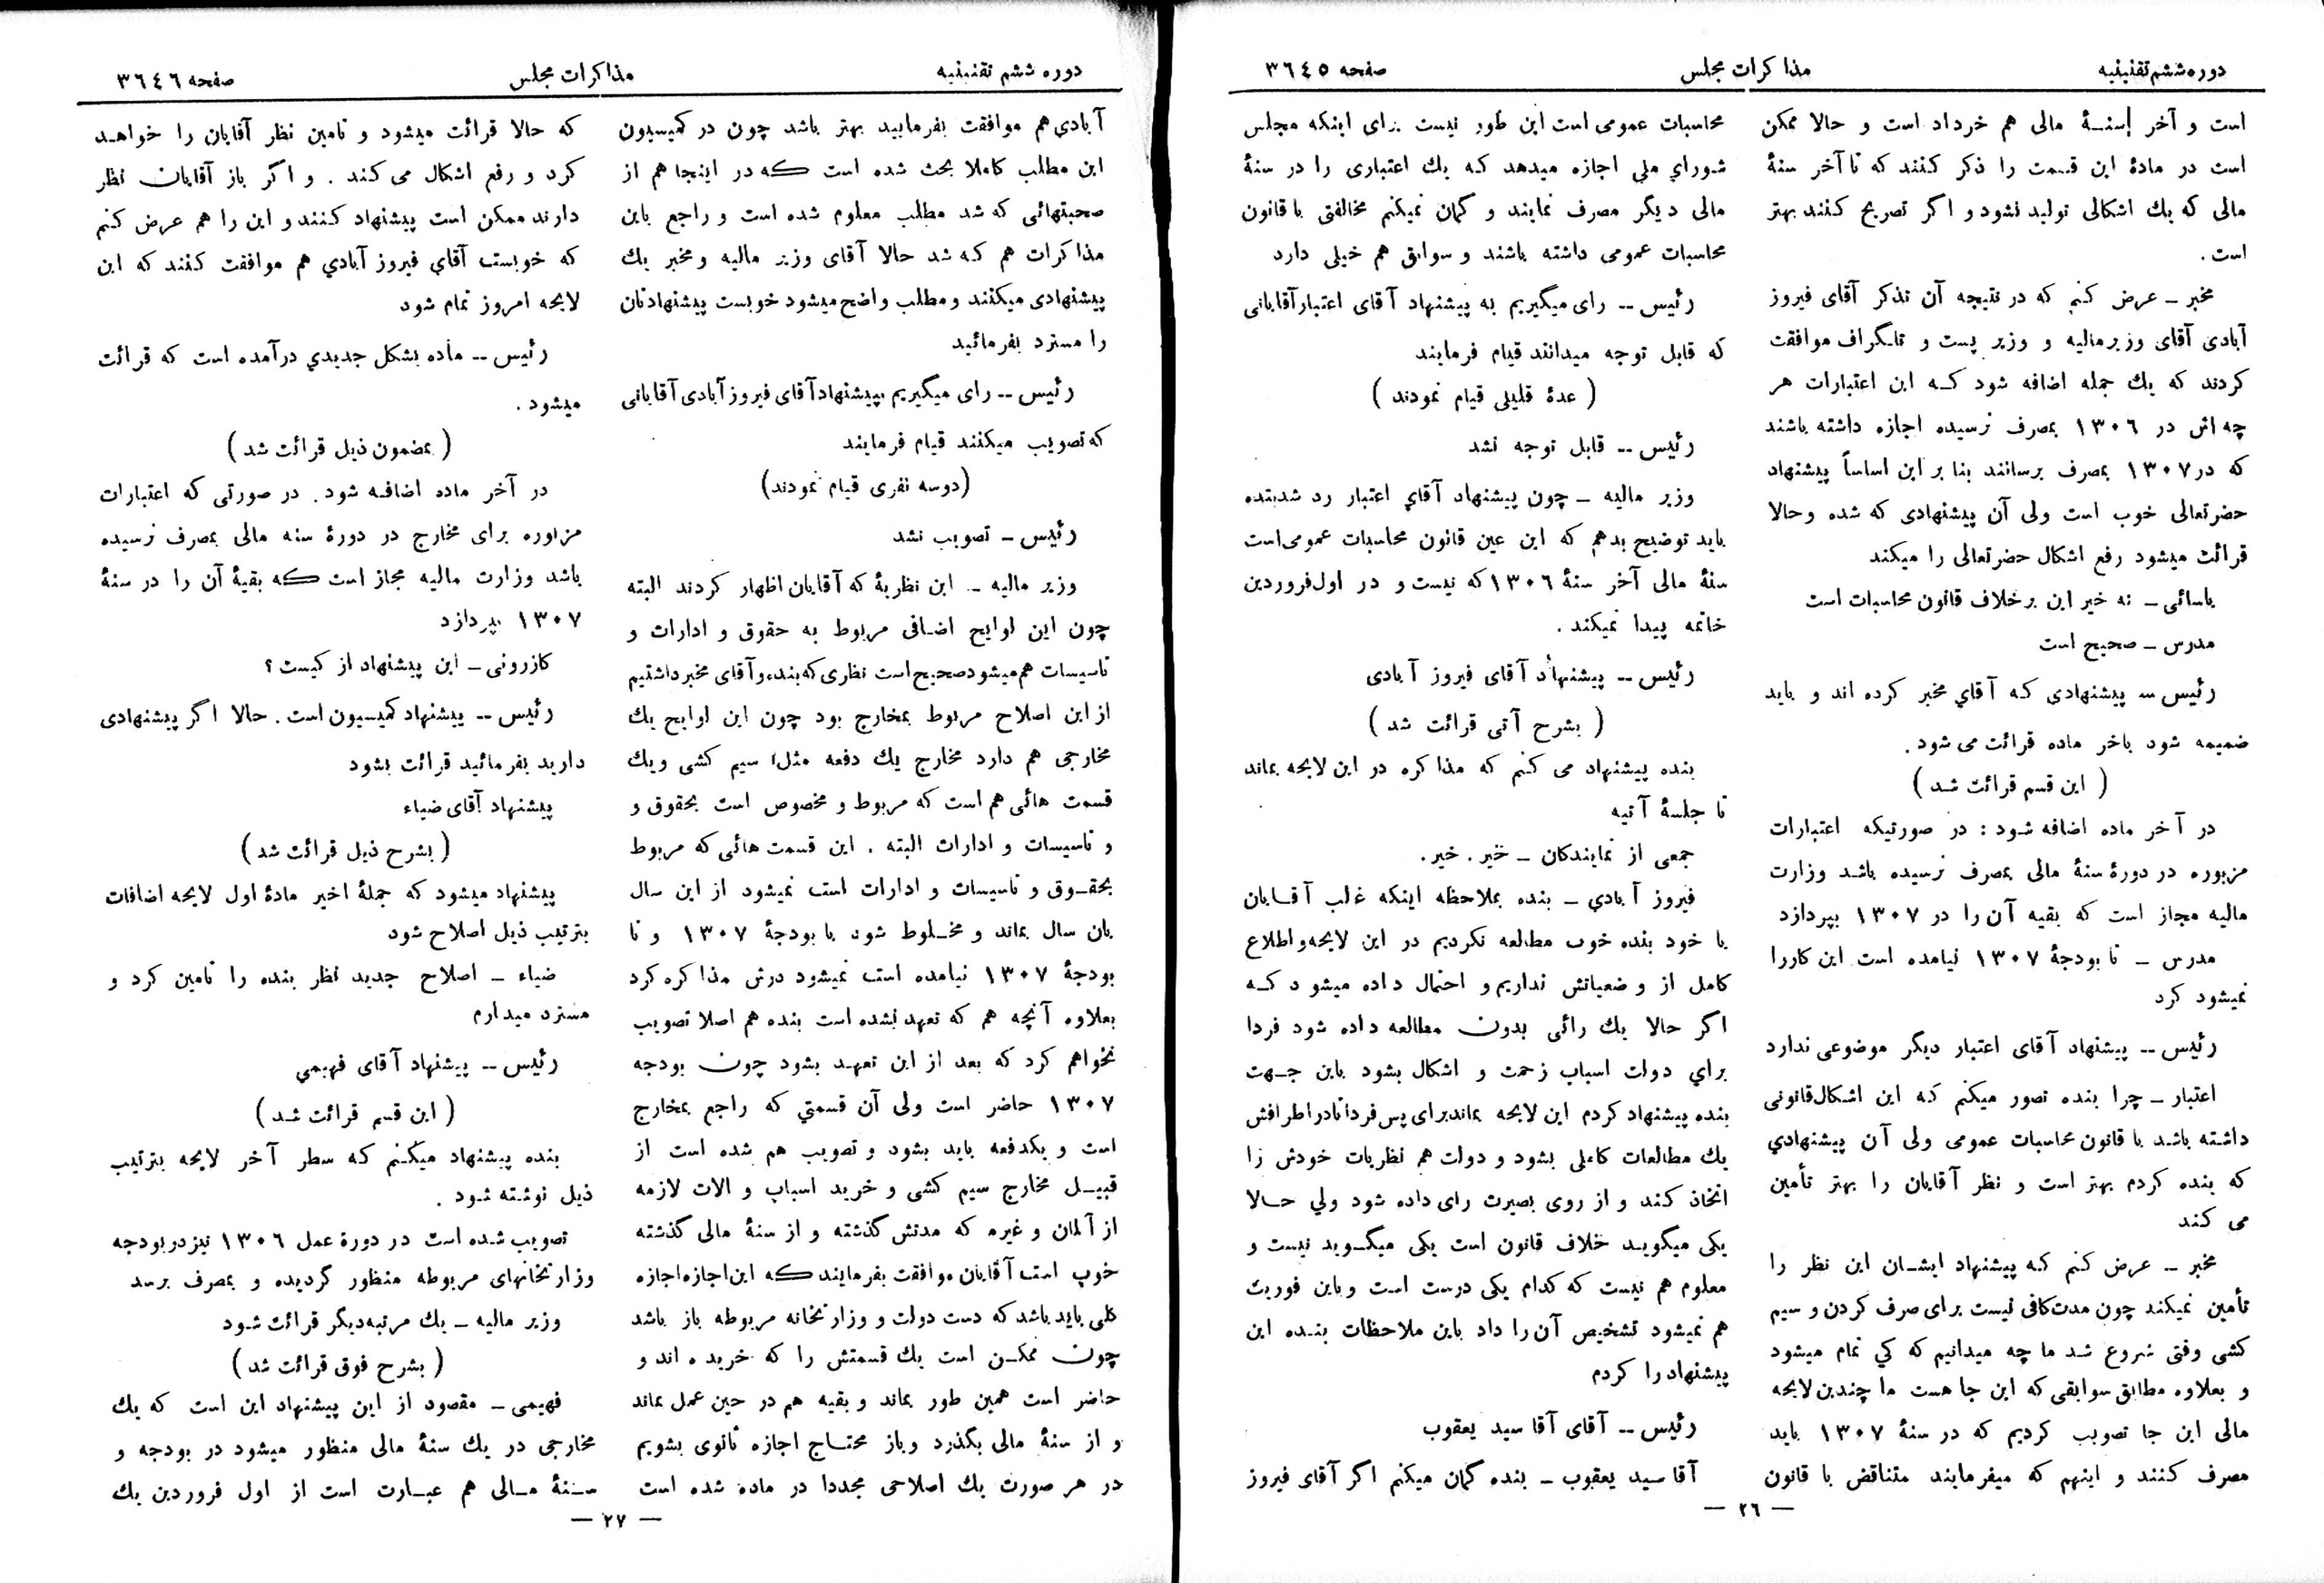 دوره ششم تقنینیه
مذاکرات مجلس
صفحه ۳٦٤٥
است و آخر سنهٔ مالی هم خرداد است و حالا ممکن
است در مادهٔ این قسمت را ذکر کنند که تا آخر سنهٔ
مالی که یك اشکالی تولید نشود و اگر تصریح کنند بهتر
است .
مخبر ـ عرض کنم که در نتیجه آن تذکر آقای فیروز
آبادی آقای وزیر مالیه و وزیر پست و تلگراف موافقت
کردند که یك جمله اضافه شود کـه این اعتبارات هر
چه اش در ۱۳۰٦ بمصرف نرسیده اجازه داشته باشند
که در ۱۳۰۷ بمصرف برسانند بنا بر این اساساً پیشنهاد
حضرتعالی خوب است ولی آن پیشنهادی که شده و حالا
قرائت میشود رفع اشکال حضرتعالی را میکند
یاسائی ـ نه خیر این برخلاف قانون محاسبات است
مدرس ـ صحیح است
رئیس ــ پیشنهادی کـه آقاي مخبر کرده اند و باید
ضمیمه شود باخر ماده قرائت می شود .
( این قسم قرائت شـد )
در آخر ماده اضافه شـود : در صورتیکه اعتبارات
مزبوره در دورهٔ سنهٔ مالی بمصرف نرسیده باشـد وزارت
مالیه مجاز است که بقیه آن را در ۱۳۰۷ بپردازد
مدرس ـ تا بودجهٔ ۱۳۰۷ نیامده است این کار را
نمیشود کرد
رئیس ــ پیشنهاد آقای اعتبار دیگر موضوعی ندارد
اعتبار ـ چرا بنده تصور میکنم که این اشکال قانونی
داشته باشد با قانون محاسبات عمومی ولی آن پیشنهادي
که بنده کردم بهتر است و نظر آقایان را بهتر تأمین
می کند
مخبر ـ عرض کنم کـه پیشنهاد ایشـان این نظر را
تأمین نمیکند چون مدت کافی نیست برای صرف کردن و سیم
کشی وقتی شروع شـد ما چه میدانیم که کي تمام میشود
و بعلاوه مطابق سوابقی که این جا هست ما چندین لایحه
مالی این جا تصویب کردیم که در سنهٔ ۱۳۰۷ باید
مصرف کنند و اینهم که میفرمایند متناقض با قانون
محاسبات عمومی است این طور نیست برای اینکه مجلس
شورای ملي اجازه میدهد کـه یك اعتباری را در سنهٔ
مالی دیگر مصرف نمایند و گمان نمیکنم مخالفتی با قانون
محاسبات عمومی داشته باشند و سوابق هم خیلی دارد
رئیس ــ رأی میگیریم به پیشنهاد آقای اعتبار آقایانی
که قابل توجه میدانند قیام فرمایند
( عدهٔ قلیلی قیام نمودند )
رئیس ــ قابل توجه نشد
وزیر مالیه ـ چون پیشنهاد آقاي اعتبار رد شد بنده
باید توضیح بدهم که این عین قانون محاسبات عمومی است
سنهٔ مالی آخر سنهٔ ۱۳۰٦ که نیست و در اول فروردین
خاتمه پیدا نمیکند .
رئیس ــ پیشنهاد آقای فیروز آبادی
( بشرح آتی قرائت شد )
بنده پیشنهاد می کنم که مذاکره در این لایحه بماند
تا جلسهٔ آتیه
جمعی از نمایندگان ـ خیر . خیر .
فیروز آبادي ـ بنده بملاحظه اینکه غلب آقـایان
با خود بنده خوب مطالعه نکردیم در این لایحه و اطلاع
کامل از وضعیاتش نداریم و احتمال داده میشود کـه
اگر حالا یك رائی بدون مطالعه داده شود فردا
براي دولت اسباب زحمت و اشکال بشود باین جـهت
بنده پیشنهاد کردم این لایحه بماند برای پس فردا تا در اطرافش
یك مطالعات کاملی بشود و دولت هم نظریات خودش را
اتخاذ کند و از روی بصیرت رای داده شود ولي حـالا
یکی میگویـد خلاف قانون است یکی میگـوید نیست و
معلوم هم نیست که کدام یکی درست است و باین فوریت
هم نمیشود تشخیص آن را داد باین ملاحظات بنـده این
پیشنهاد را کردم
رئیس ــ آقای آقا سید یعقوب
آقا سید یعقوب ـ بنده گمان میکنم اگر آقای فیروز
— ۲٦ —
دوره ششم تقنینیه
مذاکرات مجلس
صفحه ۳٦٤٦
آبادي هم موافقت بفرمایید بهتر باشد چون در کمیسیون
این مطلب کاملا بحث شده است کـه در اینجا هم از
صحبتهائی که شد مطلب معلوم شده است و راجع باین
مذاکرات هم کـه شد حالا آقای وزیر مالیه و مخبر یك
پیشنهادی میکنند و مطلب واضح میشود خوبست پیشنهادتان
را مسترد بفرمائید
رئیس ــ رای میگیریم بپیشنهاد آقای فیروز آبادی آقایانی
که تصویب میکنند قیام فرمایند
(دوسه نفری قیام نمودند)
رئیس ـ تصویب نشد
وزیر مالیه ـ این نظریهٔ که آقایان اظهار کردند البته
چون این لوایح اضافی مربوط به حقوق و ادارات و
تاسیسات هم میشود صحیح است نظری که بنده و آقای مخبر داشتیم
از این اصلاح مربوط بمخارج بود چون این لوایح یك
مخارجی هم دارد مخارج یك دفعه مثل سیم کشی و یك
قسمت هائی هم است که مربوط و مخصوص است بحقوق و
و تاسیسات و ادارات البته . این قسمت هائی که مربوط
بحقـوق و تاسیسات و ادارات است نمیشود از این سال
بان سال بماند و مخـلوط شود با بودجهٔ ۱۳۰۷ و تا
بودجهٔ ۱۳۰۷ نیامده است نمیشود درش مذاکره کرد
بعلاوه آنچه هم که تعهد نشده است بنده هم اصلا تصویب
نخواهم کرد که بعد از این تعهـد بشود چون بودجه
۱۳۰۷ حاضر است ولی آن قسمتي که راجع بمخارج
است و یکدفعه باید بشود و تصویب هم شده است از
قبیـل مخارج سیم کشی و خرید اسباب و الات لازمه
از آلمان و غیره که مدتش گذشته و از سنهٔ مالی گذشته
خوب است آقایان موافقت بفرمایند کـه این اجازه اجازه
کلی باید باشد که دست دولت و وزارتخانه مربوطه باز باشد
چون ممکـن است یك قسمتش را که خریده اند و
حاضر است همین طور بماند و بقیه هم در حین عمل بماند
و از سنهٔ مالی بگذرد و باز محتـاج اجازه ثانوی بشویم
در هر صورت یك اصلاحی مجددا در ماده شده است
که حالا قرائت میشود و تامین نظر آقایان را خواهـد
کرد و رفع اشکال می کند . و اگر باز آقایان نظر
دارند ممکن است پیشنهاد کـنند و این را هم عرض کنم
که خوبست آقاي فیروز آبادي هم موافقت کنند که این
لایحه امروز تمام شود
رئیس ــ ماده بشکل جدیدي درآمده است که قرائت
میشود .
( بمضمون ذیل قرائت شد )
در آخر ماده اضافـه شود . در صورتی که اعتبارات
مزبوره برای مخارج در دورهٔ سنه مالی بمصرف نرسیده
باشد وزارت مالیه مجاز است کـه بقیهٔ آن را در سنهٔ
۱۳۰۷ بپردازد
کازرونی ـ این پیشنهاد از کیست ؟
رئیس ــ پیشنهاد کمیسیون است . حالا اگر پیشنهادی
دارید بفرمائید قرائت بشود
پیشنهاد آقای ضیاء
( بشرح ذیل قرائت شد )
پیشنهاد میشود که جملهٔ اخیر مادهٔ اول لایحه اضافات
بترتیب ذیل اصلاح شود
ضیاء ـ اصلاح جدید نظر بنده را تامین کرد و
مسترد میدارم
رئیس ــ پیشنهاد آقای فهیمي
( این قسم قرائت شـد )
بنده پیشنهاد میکنم که سطر آخر لایحه بترتیب
ذیل نوشته شود .
تصویب شده است در دورهٔ عمل ۱۳۰٦ نیز در بودجه
وزارتخانهای مربوطه منظور گردیده و بمصرف برسد
وزیر مالیه ـ یك مرتبه دیگر قرائت شـود
( بشرح فوق قرائت شد )
فهیمی ـ مقصود از این پیشنهاد این است که یك
مخارجی در یك سنهٔ مالی منظور میشود در بودجه و
سـنهٔ مـالی هم عبـارت است از اول فروردین یك
— ۲۷ —